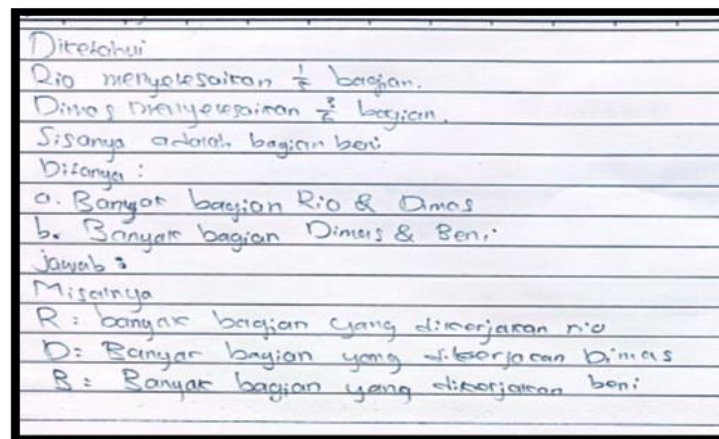 Diketahui
Rio menyelesaikan bagian.
Dimas menyelesaikan bagian.
Sisanya adalah bagian beni
Ditanya :
a. Banyak bagian Rio & Dimas
b. Banyak bagian Dimas & Beni
jawab :
Misalnya
R : banyak bagian yang dikerjakan rio
D : Banyak bagian yang dikerjakan Dimas
B : Banyak bagian yang dikerjakan beni